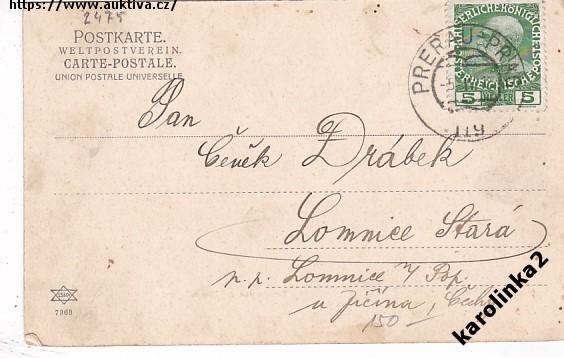 https://www.auktiva.cz/
2475
POSTKARTE.
WELTPOSTVEREIN.
CARTE-POSTALE.
UNION POSTALE UNIVERSELLE
PRERAU-PRAG
119
5 5
Pan
Čeněk Drábek
Lomnice Stará
n.p. Lomnice n/ Pop.
u Jičína, Čechy
150
7368
karolinka2